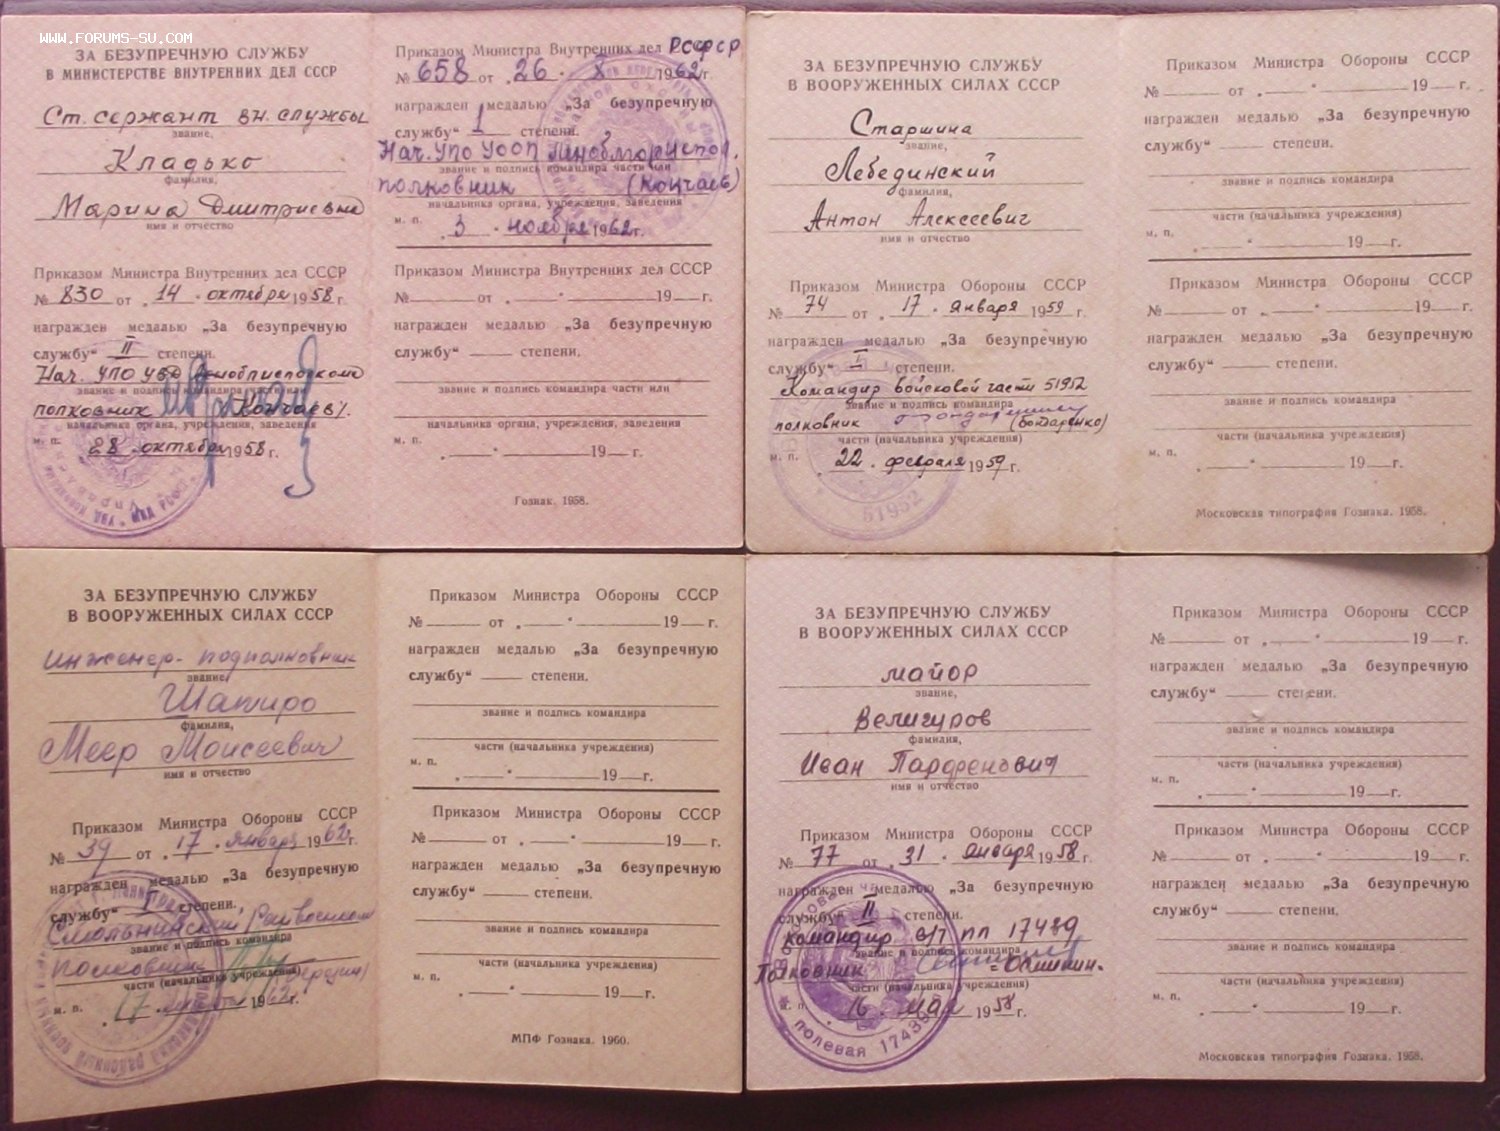 www.forums-su.com
ЗА БЕЗУПРЕЧНУЮ СЛУЖБУ
В МИНИСТЕРСТВЕ ВНУТРЕННИХ ДЕЛ СССР
Ст. сержант вн. службы
звание,
Кладько
фамилия,
Марина Дмитриевна
имя и отчество
Приказом Министра Внутренних дел СССР
№ 830 от „14" октября 1958 г.
награжден медалью „За безупречную
службу" II степени.
Нач. УПО УВД Леноблисполкома
звание и подпись командира части или
полковник (Кончаев).
начальника органа, учреждения, заведения
м. п. 28 октября 1958 г.
Приказом Министра Внутренних дел РСФСР
№ 658 от „26" X 1962 г.
награжден медалью „За безупречную
службу" 1 степени.
Нач. УПО УООП Леноблгорисполк.
звание и подпись командира части или
полковник (Кончаев)
начальника органа, учреждения, заведения
м. п. „3" ноября 1962 г.
Приказом Министра Внутренних дел СССР
№ от „ " 19 г.
награжден медалью „За безупречную
службу" степени.
звание и подпись командира части или
начальника органа, учреждения, заведения
м. п. „ " 19 г.
Гознак. 1958.
ЗА БЕЗУПРЕЧНУЮ СЛУЖБУ
В ВООРУЖЕННЫХ СИЛАХ СССР
Старшина
звание,
Лебединский
фамилия,
Антон Алексеевич
имя и отчество
Приказом Министра Обороны СССР
№ 74 от „17" января 1959 г.
награжден медалью „За безупречную
службу" I степени.
Командир войсковой части 51952
звание и подпись командира
полковник (Бондаренко)
части (начальника учреждения)
м. п. „22" февраля 1959 г.
51952
Приказом Министра Обороны СССР
№ от „ " 19 г.
награжден медалью „За безупречную
службу" степени.
звание и подпись командира
части (начальника учреждения)
м. п. „ " 19 г.
Приказом Министра Обороны СССР
№ от „ " 19 г.
награжден медалью „За безупречную
службу" степени.
звание и подпись командира
части (начальника учреждения)
м. п. „ " 19 г.
Московская типография Гознака. 1958.
ЗА БЕЗУПРЕЧНУЮ СЛУЖБУ
В ВООРУЖЕННЫХ СИЛАХ СССР
инженер-подполковник
звание,
Шапиро
фамилия,
Меер Моисеевич
имя и отчество
Приказом Министра Обороны СССР
№ 39 от „17" января 1962 г.
награжден медалью „За безупречную
службу" I степени.
Смольнинский Райвоенком
звание и подпись командира
полковник
части (начальника учреждения)
м. п. „17" 1962 г.
Приказом Министра Обороны СССР
№ от „ " 19 г.
награжден медалью „За безупречную
службу" степени.
звание и подпись командира
части (начальника учреждения)
м. п. „ " 19 г.
Приказом Министра Обороны СССР
№ от „ " 19 г.
награжден медалью „За безупречную
службу" степени.
звание и подпись командира
части (начальника учреждения)
м. п. „ " 19 г.
МПФ Гознака. 1960.
ЗА БЕЗУПРЕЧНУЮ СЛУЖБУ
В ВООРУЖЕННЫХ СИЛАХ СССР
майор
звание,
Велигуров
фамилия,
Иван Парфенович
имя и отчество
Приказом Министра Обороны СССР
№ 77 от „31" января 1958 г.
награжден медалью „За безупречную
службу" II степени.
командир в/ч пп 17439
звание и подпись командира
Полковник
части (начальника учреждения)
м. п. „16" мая 1958 г.
полевая 17439
Приказом Министра Обороны СССР
№ от „ " 19 г.
награжден медалью „За безупречную
службу" степени.
звание и подпись командира
части (начальника учреждения)
м. п. „ " 19 г.
Приказом Министра Обороны СССР
№ от „ " 19 г.
награжден медалью „За безупречную
службу" степени.
звание и подпись командира
части (начальника учреждения)
м. п. „ " 19 г.
Московская типография Гознака. 1958.